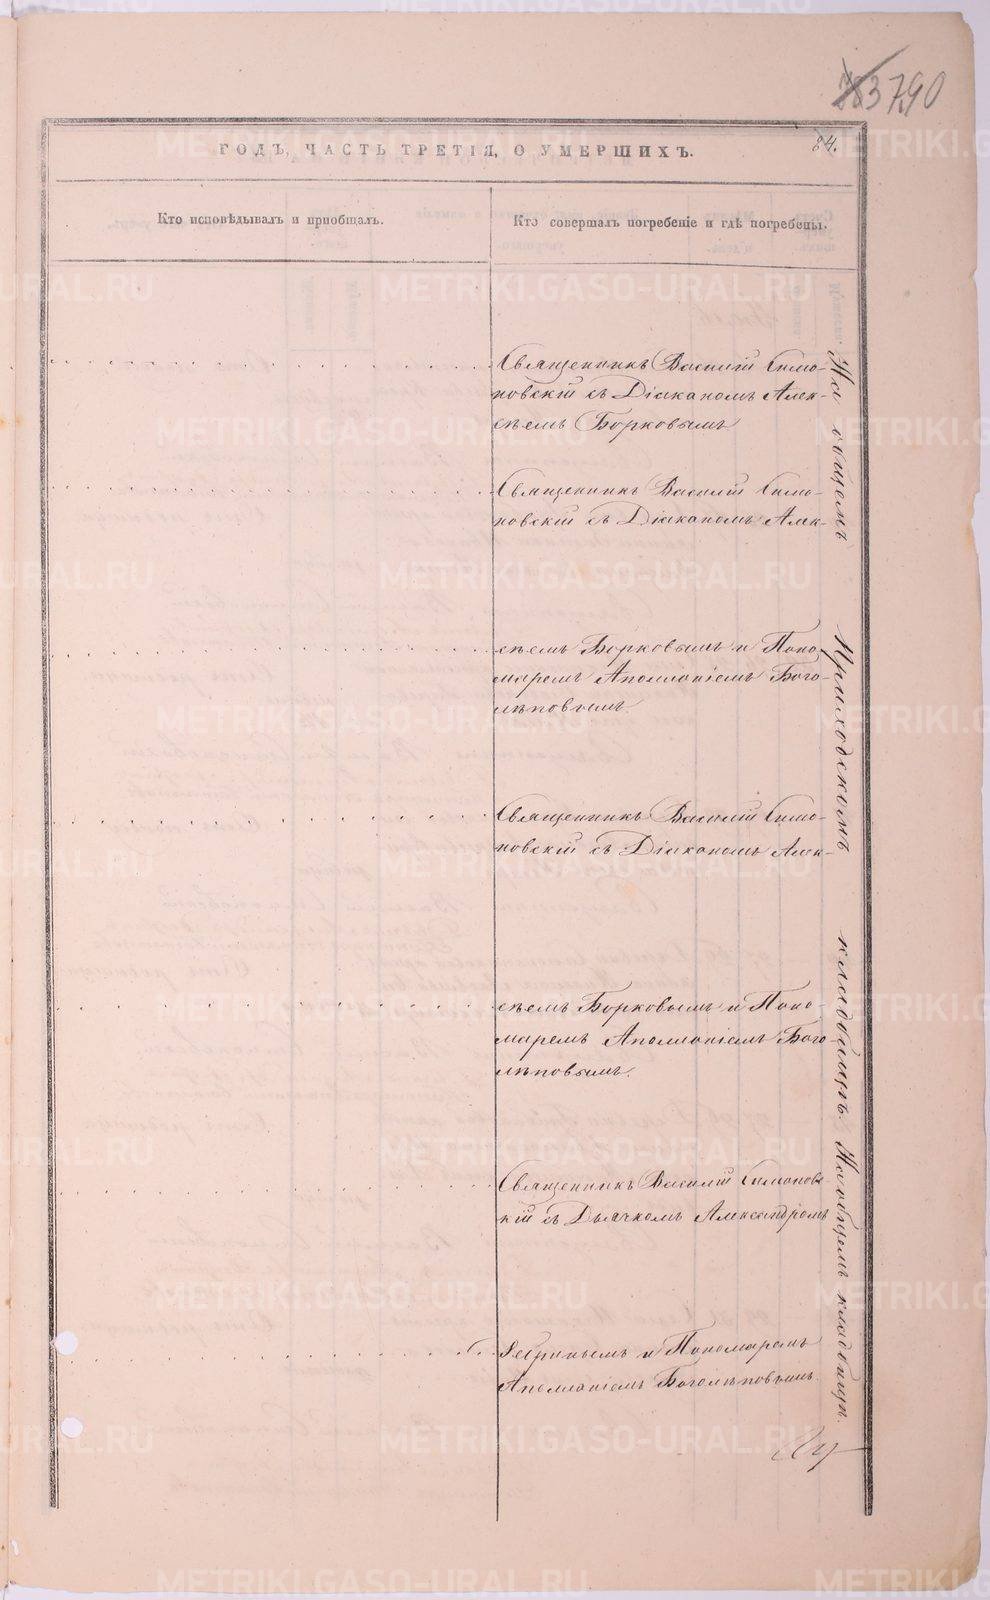 3790
84.
ГОДЪ, ЧАСТЬ ТРЕТІЯ, О УМЕРШИХЪ.
Кто исповѣдывалъ и приобщалъ.
Кто совершалъ погребеніе и гдѣ погребены.
Священникъ Василій Симо-
новскій съ Діакономъ Алек-
сѣемъ Борковымъ
Священникъ Василій Симо-
новскій съ Діакономъ Алек-
сѣемъ Борковымъ и Поно
маремъ Аполлоніемъ Бого-
лѣповымъ.
Священникъ Василій Симо-
новскій съ Діакономъ Алек-
сѣемъ Борковымъ и Поно-
маремъ Аполлоніемъ Бого
лѣповымъ.
Священникъ Василій Симоновс
кій съ Дьячкомъ Александромъ
и Пономаремъ
Аполлоніемъ Боголѣповымъ.
На общемъ Приходскомъ кладбищѣ.
На общемъ кладбищѣ.
METRIKI.GASO-URAL.RU